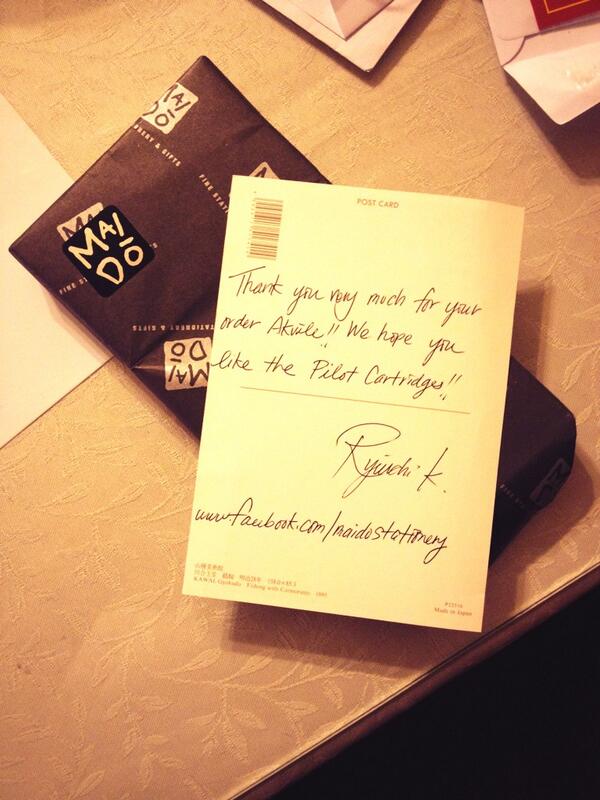 MAI
DO
FINE STATIONERY & GIFTS
MAI
DO
STATIONERY & GIFTS
MAI
DO
POST CARD
Thank you very much for your
order Akule!! We hope you
like the Pilot Cartridges!!
Ryuichi K.
www.facebook.com/maidostationery
山種美術館
明治28年
KAWAI Gyokudo Fishing with Cormorants 1895
Made in Japan